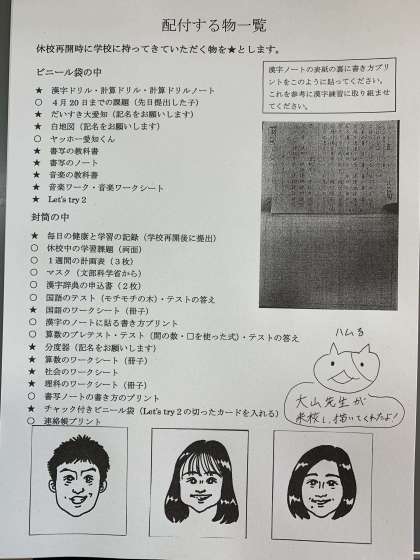 配付する物一覧
休校再開時に学校に持ってきていただく物を★とします。
ビニール袋の中
★ 漢字ドリル・計算ドリル・計算ドリルノート
○ ４月20日までの課題（先日提出した子）
★ だいすき大愛知（記名をお願いします）
★ 白地図（記名をお願いします）
○ ヤッホー愛知くん
★ 書写の教科書
★ 書写のノート
★ 音楽の教科書
★ 音楽ワーク・音楽ワークシート
★ Let's try 2
漢字ノートの表紙の裏に書き方プリ
ントをこのように貼ってください。
これを参考に漢字練習に取り組ませ
てください。
封筒の中
★ 毎日の健康と学習の記録（学校再開後に提出）
○ 休校中の学習課題（両面）
○ １週間の計画表（３枚）
○ マスク（文部科学省から）
○ 漢字辞典の申込書（２枚）
○ 国語のテスト（モチモチの木）・テストの答え
★ 国語のワークシート（冊子）
○ 漢字のノートに貼る書き方プリント
○ 算数のプレテスト・テスト（間の数・□を使った式）・テストの答え
★ 分度器（記名をお願いします）
★ 算数のワークシート（冊子）
★ 社会のワークシート
★ 理科のワークシート（冊子）
○ 書写ノートの書き方のプリント
★ チャック付きビニール袋（Let's try 2 の切ったカードを入れる）
○ 連絡帳プリント
ハムを
大山先生が
来校し、描いてくれたよ！